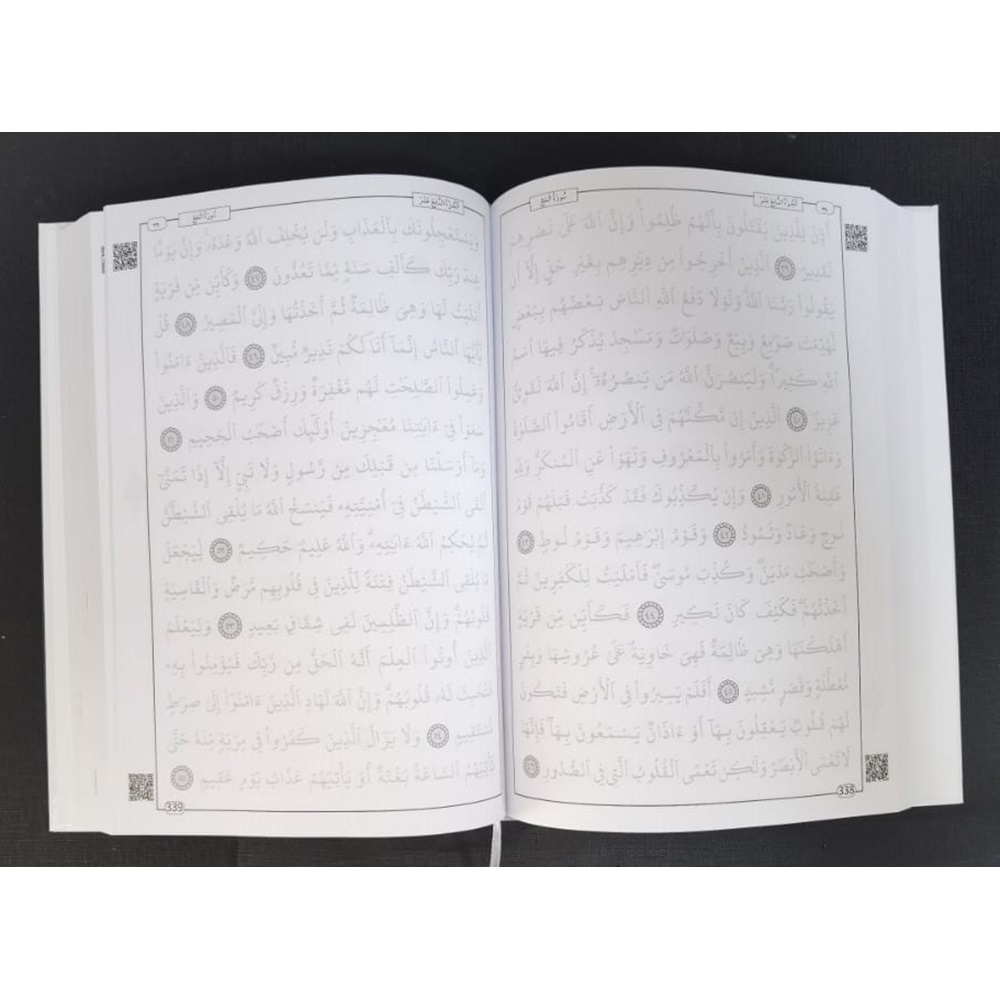 الجُزْءُ السَّابِعَ عَشَرَ
سُورَةُ الحَجِّ
أُذِنَ لِلَّذِينَ يُقَٰتَلُونَ بِأَنَّهُمْ ظُلِمُوا۟ وَإِنَّ ٱللَّهَ عَلَىٰ نَصْرِهِمْ
لَقَدِيرٌ ٣٩ ٱلَّذِينَ أُخْرِجُوا۟ مِن دِيَٰرِهِم بِغَيْرِ حَقٍّ إِلَّآ أَن
يَقُولُوا۟ رَبُّنَا ٱللَّهُ وَلَوْلَا دَفْعُ ٱللَّهِ ٱلنَّاسَ بَعْضَهُم بِبَعْضٍ
لَّهُدِّمَتْ صَوَٰمِعُ وَبِيَعٌ وَصَلَوَٰتٌ وَمَسَٰجِدُ يُذْكَرُ فِيهَا ٱسْمُ
ٱللَّهِ كَثِيرًا وَلَيَنصُرَنَّ ٱللَّهُ مَن يَنصُرُهُۥٓ إِنَّ ٱللَّهَ لَقَوِىٌّ
عَزِيزٌ ٤٠ ٱلَّذِينَ إِن مَّكَّنَّٰهُمْ فِى ٱلْأَرْضِ أَقَامُوا۟ ٱلصَّلَوٰةَ
وَءَاتَوُا۟ ٱلزَّكَوٰةَ وَأَمَرُوا۟ بِٱلْمَعْرُوفِ وَنَهَوْا۟ عَنِ ٱلْمُنكَرِ وَلِلَّهِ
عَٰقِبَةُ ٱلْأُمُورِ ٤١ وَإِن يُكَذِّبُوكَ فَقَدْ كَذَّبَتْ قَبْلَهُمْ قَوْمُ
نُوحٍ وَعَادٌ وَثَمُودُ ٤٢ وَقَوْمُ إِبْرَٰهِيمَ وَقَوْمُ لُوطٍ ٤٣
وَأَصْحَٰبُ مَدْيَنَ وَكُذِّبَ مُوسَىٰ فَأَمْلَيْتُ لِلْكَٰفِرِينَ ثُمَّ
أَخَذْتُهُمْ فَكَيْفَ كَانَ نَكِيرِ ٤٤ فَكَأَيِّن مِّن قَرْيَةٍ
أَهْلَكْنَٰهَا وَهِىَ ظَالِمَةٌ فَهِىَ خَاوِيَةٌ عَلَىٰ عُرُوشِهَا وَبِئْرٍ
مُّعَطَّلَةٍ وَقَصْرٍ مَّشِيدٍ ٤٥ أَفَلَمْ يَسِيرُوا۟ فِى ٱلْأَرْضِ فَتَكُونَ
لَهُمْ قُلُوبٌ يَعْقِلُونَ بِهَآ أَوْ ءَاذَانٌ يَسْمَعُونَ بِهَا فَإِنَّهَا
لَا تَعْمَى ٱلْأَبْصَٰرُ وَلَٰكِن تَعْمَى ٱلْقُلُوبُ ٱلَّتِى فِى ٱلصُّدُورِ ٤٦
338
الجُزْءُ السَّابِعَ عَشَرَ
سُورَةُ الحَجِّ
وَيَسْتَعْجِلُونَكَ بِٱلْعَذَابِ وَلَن يُخْلِفَ ٱللَّهُ وَعْدَهُۥ وَإِنَّ يَوْمًا
عِندَ رَبِّكَ كَأَلْفِ سَنَةٍ مِّمَّا تَعُدُّونَ ٤٧ وَكَأَيِّن مِّن قَرْيَةٍ
أَمْلَيْتُ لَهَا وَهِىَ ظَالِمَةٌ ثُمَّ أَخَذْتُهَا وَإِلَىَّ ٱلْمَصِيرُ ٤٨ قُلْ
يَٰٓأَيُّهَا ٱلنَّاسُ إِنَّمَآ أَنَا۠ لَكُمْ نَذِيرٌ مُّبِينٌ ٤٩ فَٱلَّذِينَ ءَامَنُوا۟
وَعَمِلُوا۟ ٱلصَّٰلِحَٰتِ لَهُم مَّغْفِرَةٌ وَرِزْقٌ كَرِيمٌ ٥٠ وَٱلَّذِينَ
سَعَوْا۟ فِىٓ ءَايَٰتِنَا مُعَٰجِزِينَ أُو۟لَٰٓئِكَ أَصْحَٰبُ ٱلْجَحِيمِ ٥١
وَمَآ أَرْسَلْنَا مِن قَبْلِكَ مِن رَّسُولٍ وَلَا نَبِىٍّ إِلَّآ إِذَا تَمَنَّىٰٓ
أَلْقَى ٱلشَّيْطَٰنُ فِىٓ أُمْنِيَّتِهِۦ فَيَنسَخُ ٱللَّهُ مَا يُلْقِى ٱلشَّيْطَٰنُ
ثُمَّ يُحْكِمُ ٱللَّهُ ءَايَٰتِهِۦ وَٱللَّهُ عَلِيمٌ حَكِيمٌ ٥٢ لِّيَجْعَلَ
مَا يُلْقِى ٱلشَّيْطَٰنُ فِتْنَةً لِّلَّذِينَ فِى قُلُوبِهِم مَّرَضٌ وَٱلْقَاسِيَةِ
قُلُوبُهُمْ وَإِنَّ ٱلظَّٰلِمِينَ لَفِى شِقَاقٍۭ بَعِيدٍ ٥٣ وَلِيَعْلَمَ
ٱلَّذِينَ أُوتُوا۟ ٱلْعِلْمَ أَنَّهُ ٱلْحَقُّ مِن رَّبِّكَ فَيُؤْمِنُوا۟ بِهِۦ
فَتُخْبِتَ لَهُۥ قُلُوبُهُمْ وَإِنَّ ٱللَّهَ لَهَادِ ٱلَّذِينَ ءَامَنُوٓا۟ إِلَىٰ صِرَٰطٍ
مُّسْتَقِيمٍ ٥٤ وَلَا يَزَالُ ٱلَّذِينَ كَفَرُوا۟ فِى مِرْيَةٍ مِّنْهُ حَتَّىٰ
تَأْتِيَهُمُ ٱلسَّاعَةُ بَغْتَةً أَوْ يَأْتِيَهُمْ عَذَابُ يَوْمٍ عَقِيمٍ ٥٥
339